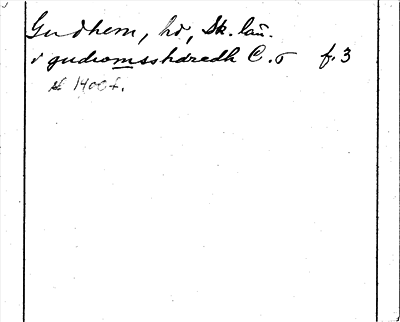 Gudhem, hd, Sk. län.
i gudhomsshæredh C. 5 f. 3
sl 1400 t.